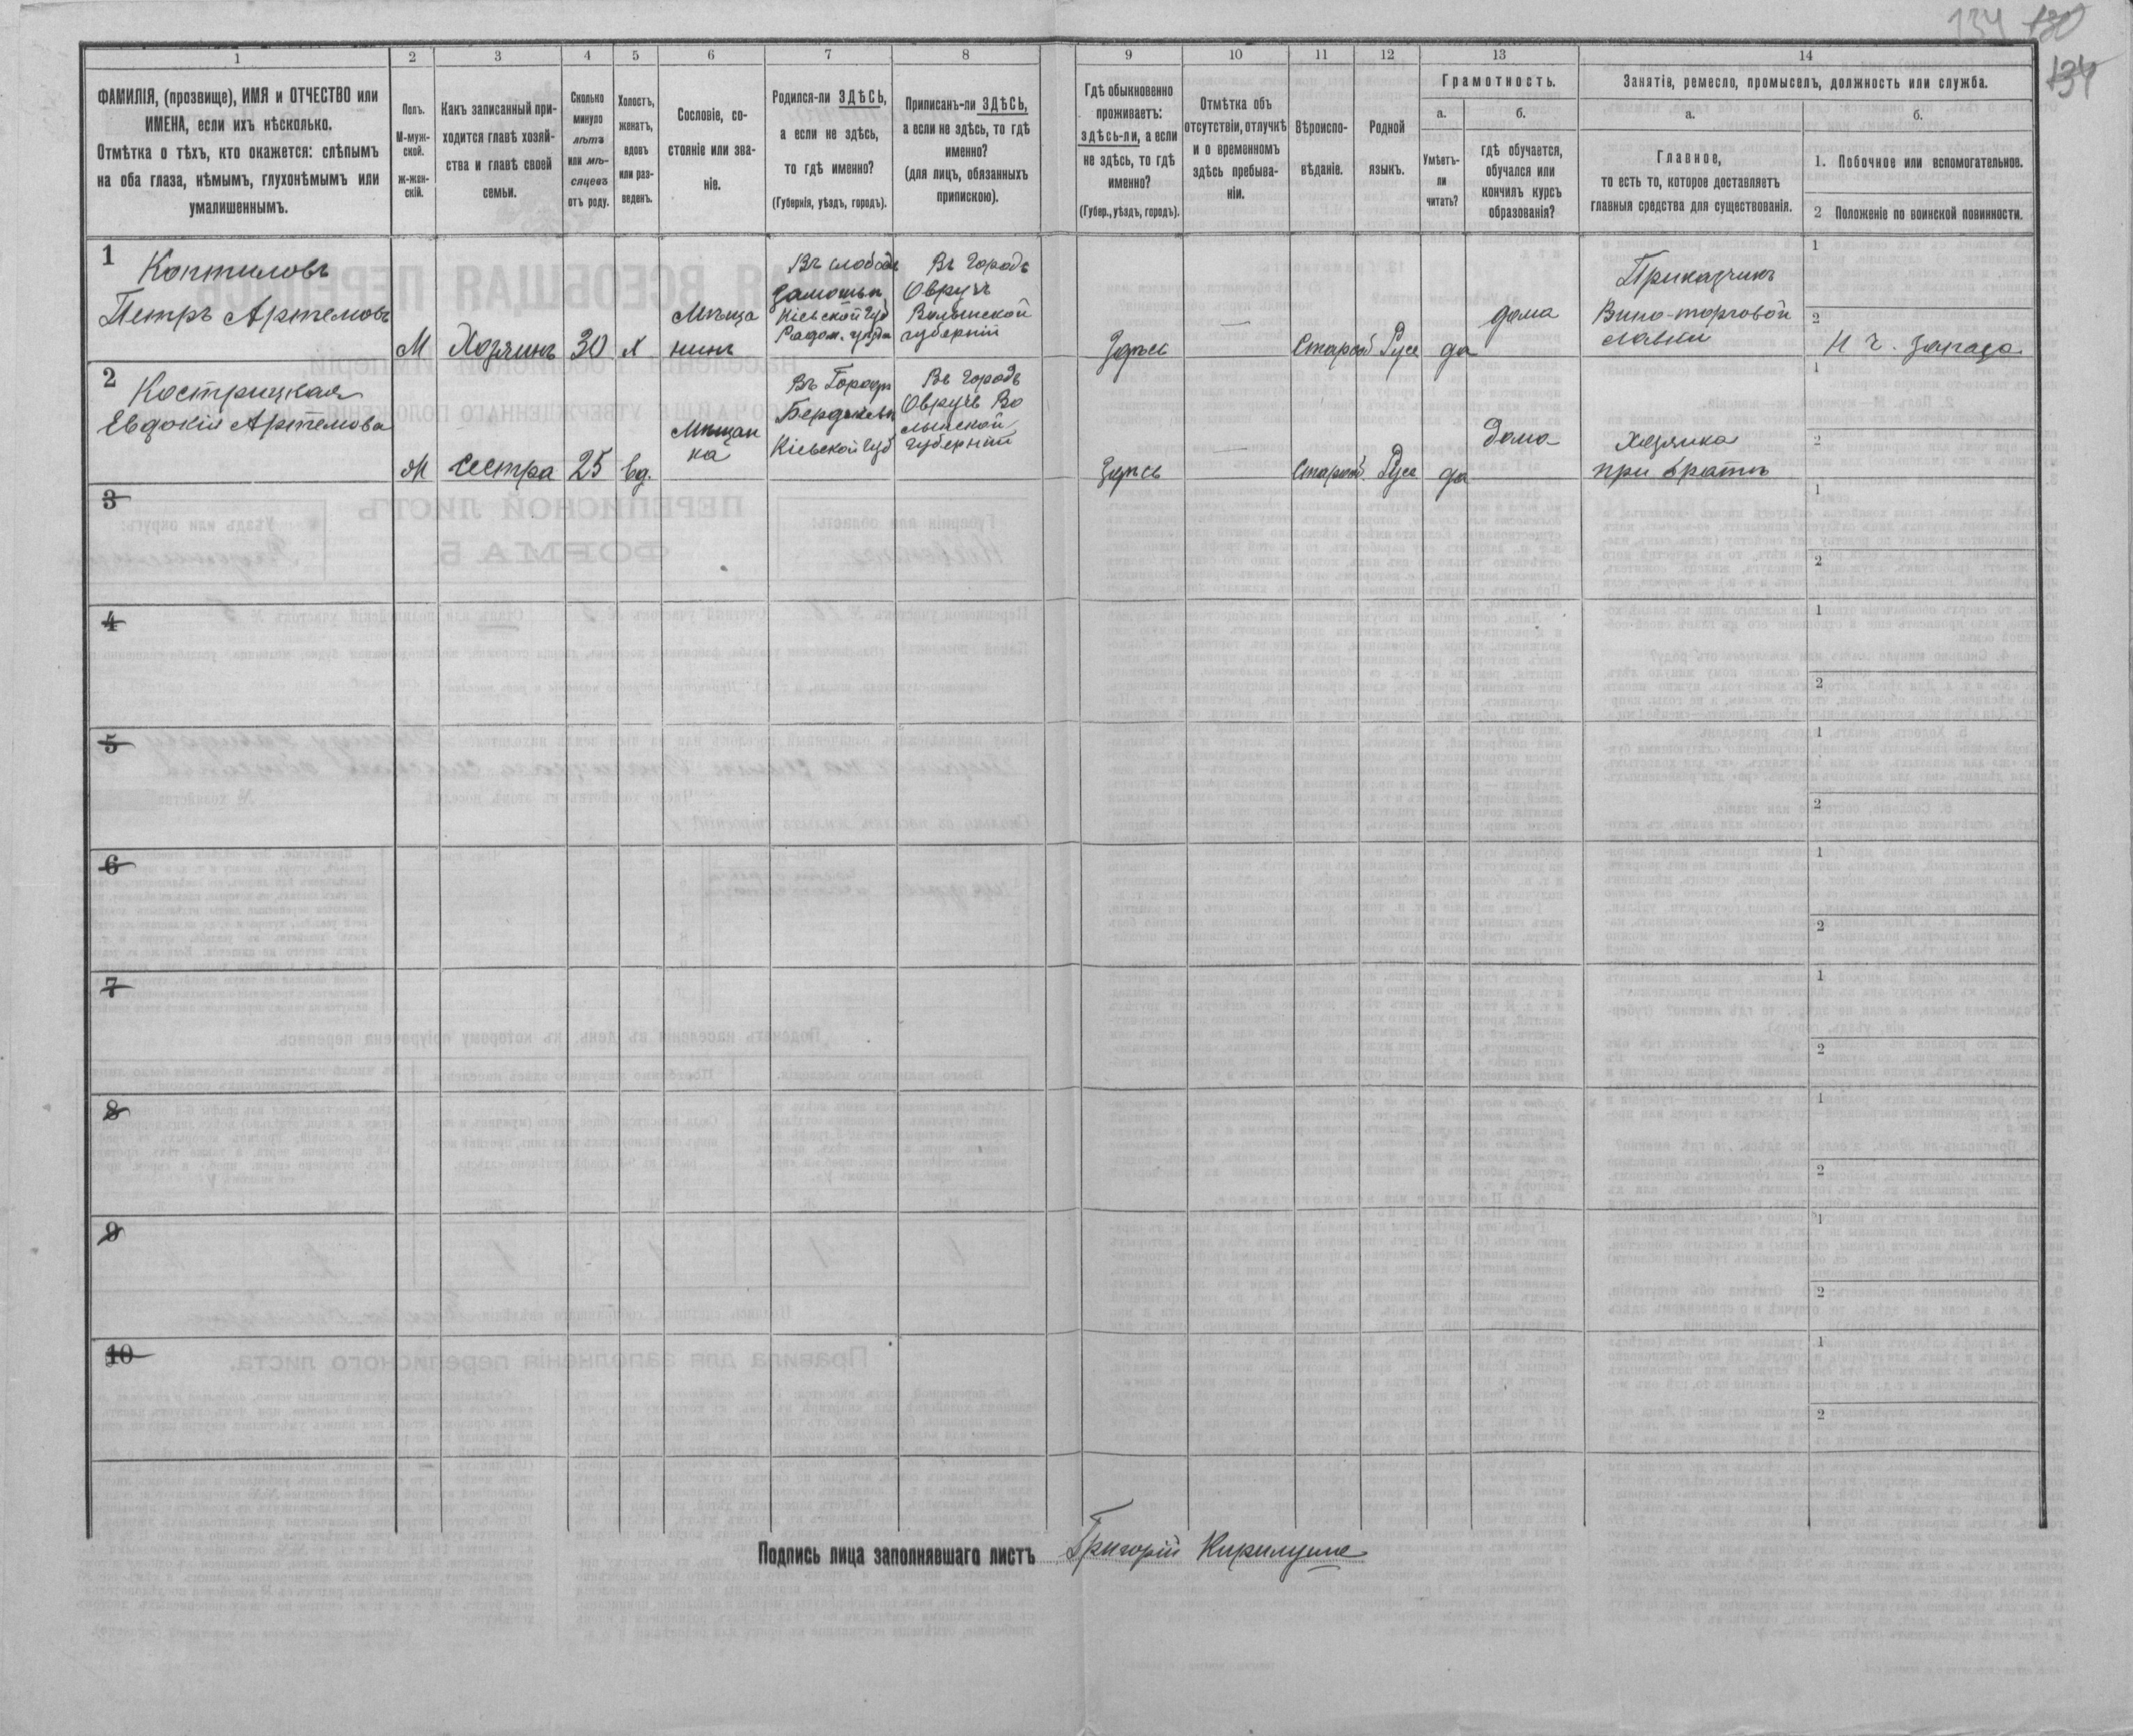 134 130
134
1
2
3
4
5
6
7
8
9
10
11
12
13
14
ФАМИЛІЯ, (прозвище), ИМЯ и ОТЧЕСТВО или
ИМЕНА, если ихъ нѣсколько.
Отмѣтка о тѣхъ, кто окажется: слѣпымъ
на оба глаза, нѣмымъ, глухонѣмымъ или
умалишеннымъ.
Полъ.
М-муж-
ской.
ж-жен-
скій.
Какъ записанный при-
ходится главѣ хозяй-
ства и главѣ своей
семьи.
Сколько
минуло
лѣтъ
или мѣ-
сяцевъ
отъ роду.
Холостъ,
женатъ,
вдовъ
или раз-
веденъ.
Сословіе, со-
стояніе или зва-
ніе.
Родился-ли ЗДѢСЬ,
а если не здѣсь,
то гдѣ именно?
(Губернія, уѣздъ, городъ).
Приписанъ-ли ЗДѢСЬ,
а если не здѣсь, то гдѣ
именно?
(для лицъ, обязанныхъ
припискою).
Гдѣ обыкновенно
проживаетъ:
здѣсь-ли, а если
не здѣсь, то гдѣ
именно?
(Губер., уѣздъ, городъ).
Отмѣтка объ
отсутствіи, отлучкѣ
и о временномъ
здѣсь пребыва-
ніи.
Вѣроиспо-
вѣданіе.
Родной
языкъ.
Грамотность.
а.
Умѣетъ-
ли
читать?
б.
гдѣ обучается,
обучался или
кончилъ курсъ
образованія?
Занятія, ремесло, промыселъ, должность или служба.
а.
Главное,
то есть то, которое доставляетъ
главныя средства для существованія.
б.
1. Побочное или вспомогательное.
2 Положеніе по воинской повинности.
1
Коптиловъ
Петръ Артемовъ
М
Хозяинъ
30
х
Мѣща
нинъ
Въ слободѣ
Кіевской Губ
Въ Городѣ
Овручъ
Волынской
губерніи
Здѣсь
—
Старов
Русс
да
дома
Приказчикъ
Вино-торговой
лавки
1
2
Н ч. запаса
2
Кострицкая
Евдокія Артемова
сестра
25
вд.
Мѣщан
ка
Въ Городѣ
Бердичевъ
Кіевской Губ
Въ Городѣ
Овручъ Во
лынской
Губерніи
Здѣсь
—
Старов.
Русс
да
Дома
Хозяйка
при братѣ
1
2
3
1
2
4
1
2
5
1
2
6
1
2
7
1
2
8
1
2
9
1
2
10
1
2
Подпись лица заполнявшаго листъ Григорій